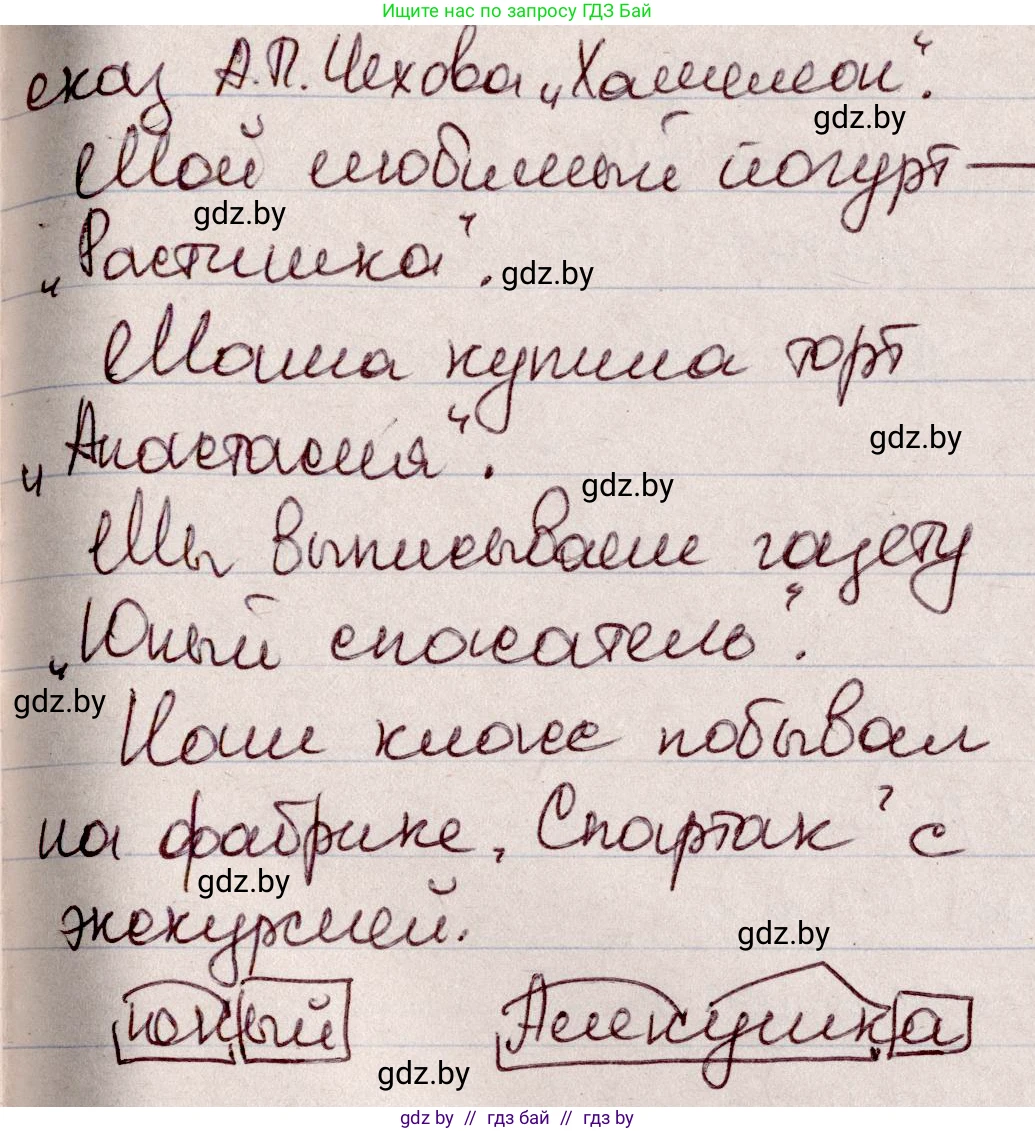 Ищите нас по запросу ГДЗ Бай
сказ А.П. Чехова „Хамелеон“.
gdz.by
Мой любимый йогурт —
gdz.by
„Растишка“.
gdz.by
Маша купила торт
„Анастасия“.
gdz.by
gdz.by
Мы выписываем газету
„Юный спасатель“.
gdz.by
Наш класс побывал
на фабрике „Спартак“ с
gdz.by
экскурсией.
gdz.by
юный Алексушка
gdz.by
gdz.by // гдз бай // гдз by